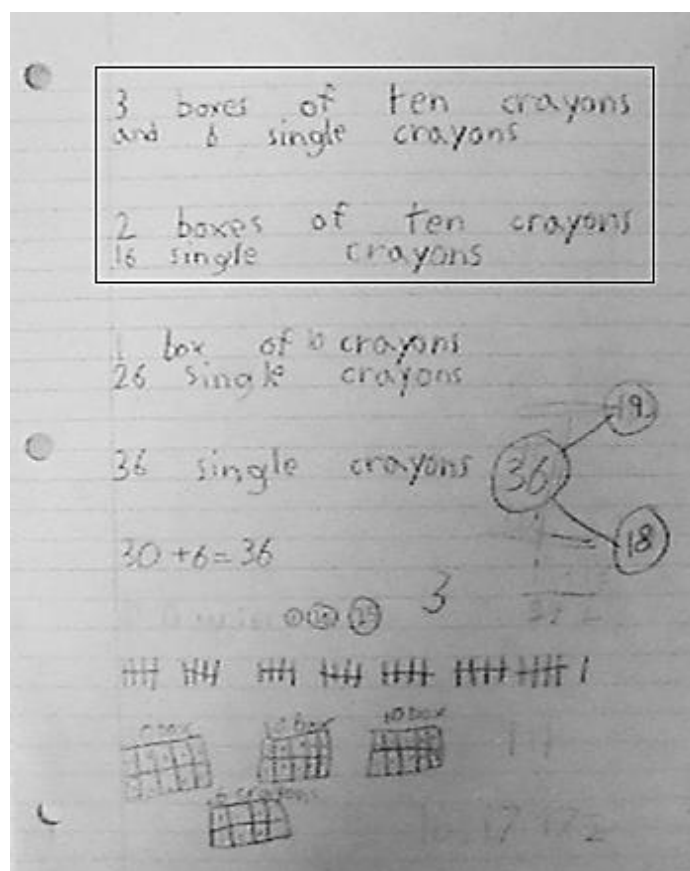 3 boxes of ten crayons
and 6 single crayons
2 boxes of ten crayons
16 single crayons
1 box of 10 crayons
26 single crayons
19
36 single crayons
36
18
30 + 6 = 36
3
box
10 box
10 box
crayons